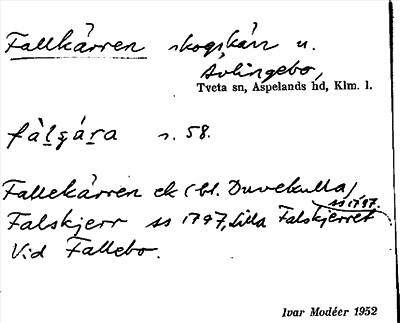 Fallkärren skogskärr u.
Åvlingebo,
Tveta sn, Aspelands hd, Klm. l.
fàlʂára s. 58.
Fallekärren ek (bl. Duvekulla)
ss 1797.
Falskjerr ss 1797, Lilla Falskjerret
Vid Fallebo.
Ivar Modéer 1952